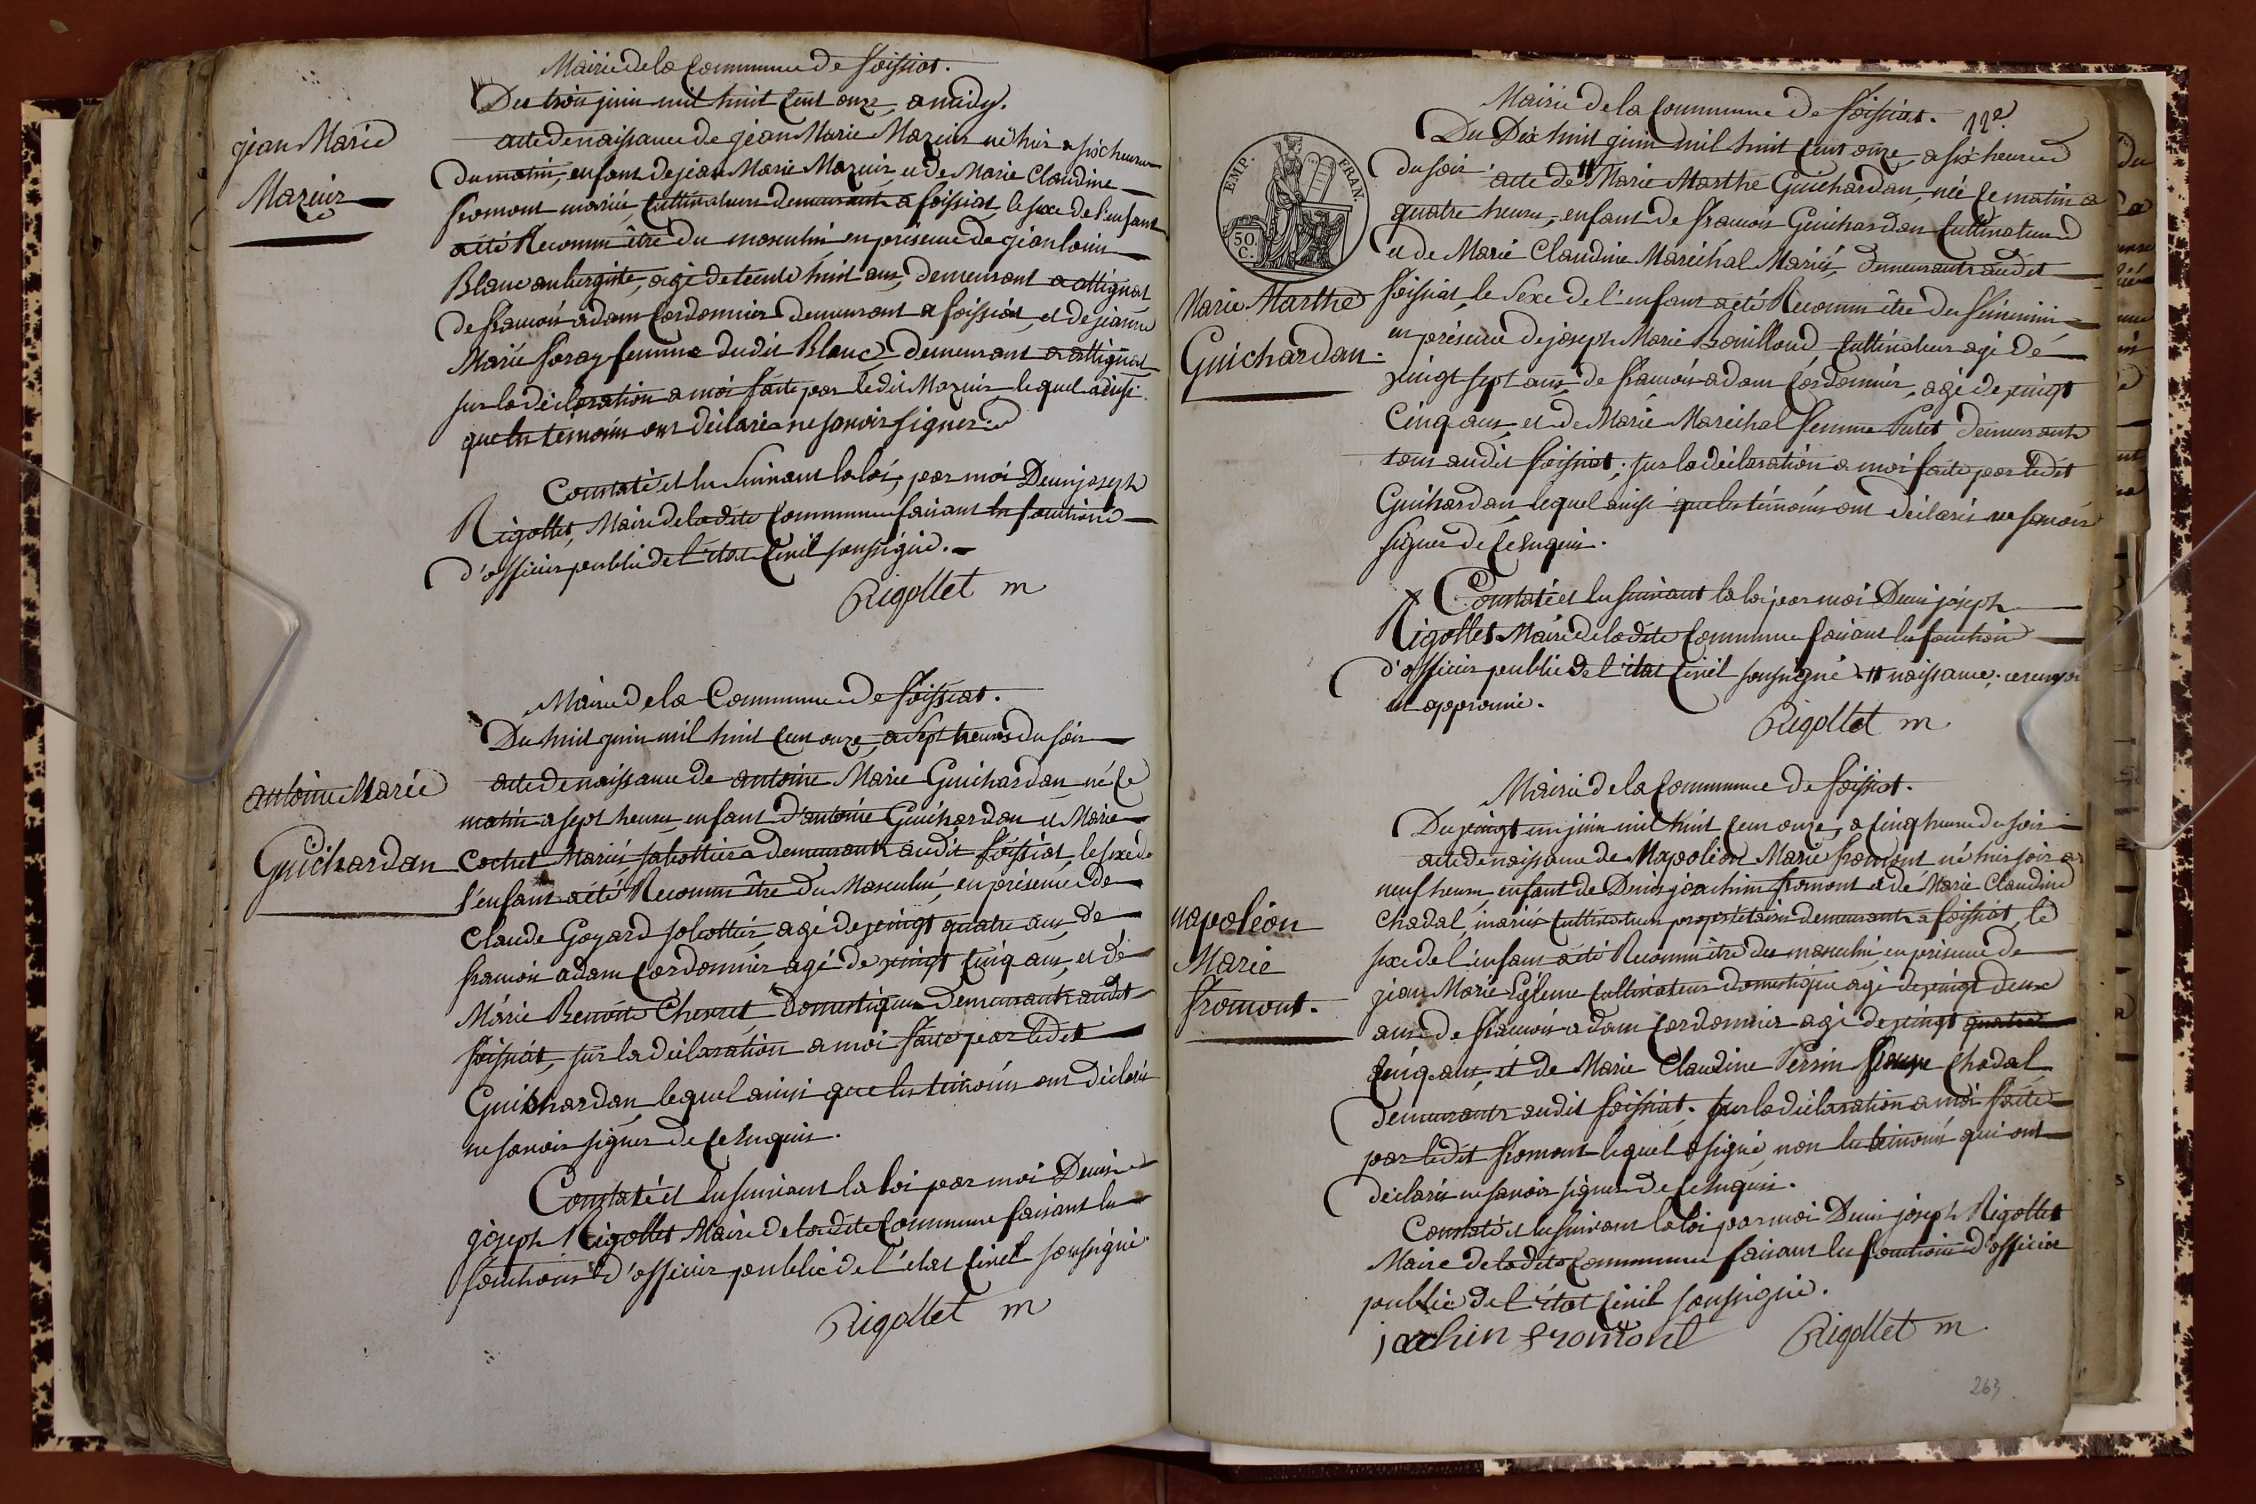 Mairie de la Commune de foissiat.
Du trois juin mil huit Cent onze, a midy.
jean Marie
Mazuir
acte de naissance de jean Marie Mazuir né hier a six heures
du matin, enfant de jean Marie Mazuir et de Marie Claudine
fromont mariés, Cultivateurs demeurants a foissiat, le sexe de l'enfant
a été Reconnu être du masculin en présence de jean louis
Blanc aubergiste, agé de trente huit ans, demeurant a attignat
de françois adam Cordonnier demeurant a foissiat, et de jeanne
Marie foray femme dudit Blanc demeurant a attignat
sur la déclaration a moi faite par ledit Mazuir lequel ainsi
que les témoins ont déclarés ne savoir signer.
Constaté et lu suivant la loi, par moi Denis joseph
Rigollet, Maire de ladite Commune faisant les fonctions
d'officier public de l'état Civil soussigné.
Rigollet m
Mairie de la Commune de foissiat.
Du huit juin mil huit Cent onze, a sept heures du soir
antoine Marie
Guichardan
acte de naissance de antoine Marie Guichardan né ce
matin a sept heures, enfant d'antoine Guichardan et Marie
Cochet Mariés, sabottiers demeurants audit foissiat, le sexe de
l'enfant a été Reconnu être du Masculin, en présence de
Claude Goyard sabottier, agé de vingt quatre ans, de
françois adam Cordonnier agé de vingt Cinq ans, et de
Marie Benoite Chevret Domestique Demeurants audit
foissiat, sur la déclaration a moi faite par ledit
Guichardan, lequel ainsi que les témoins ont déclarés
ne savoir signer de ce Enquis.
Constaté et lu suivant la loi par moi Denis
joseph Rigollet Maire de ladite Commune faisant les
fonctions d'officier public de l'état Civil soussigné.
Rigollet m
Mairie de la Commune de foissiat.
12e
Du Dix huit juin mil huit Cent onze, a six heures
EMP. FRAN.
50. C.
Marie Marthe
Guichardan.
du soir acte de # Marie Marthe Guichardan, née ce matin a
quatre heures, enfant de françois Guichardan Cultivateur
et de Marie Claudine Maréchal Mariés, demeurants audit
foissiat, le sexe de l'enfant a été Reconnu être du féminin,
en présence de joseph Marie Bouilloud Cultivateur agé de
vingt sept ans, de françois adam Cordonnier, agé de vingt
Cinq ans, et de Marie Maréchal femme Putet demeurants
tous audit foissiat, sur la déclaration a moi faite par ledit
Guichardan, lequel ainsi que les témoins ont déclarés ne savoir
signer de ce Enquis.
Constaté et lu suivant la loi par moi Denis joseph
Rigollet Maire de ladite Commune faisant les fonctions
d'officier public de l'état Civil soussigné # naissance. ce renvoi
est approuvé.
Rigollet m
Mairie de la Commune de foissiat.
Du vingt un juin mil huit Cent onze, a Cinq heures du soir
napoléon
Marie
fromont.
acte de naissance de Napoléon Marie fromont né hier soir a
neuf heures, enfant de Denis joachim fromont et de Marie Claudine
Chadal, mariés Cultivateurs propriétaires demeurants a foissiat, le
sexe de l'enfant a été Reconnu être du masculin, en présence de
jean Marie Egleme Cultivateur domestique agé de vingt deux
ans, de françois adam Cordonnier agé de vingt quatre
Cinq ans, et de Marie Claudine Perrin femme Chadal
demeurants audit foissiat. sur la déclaration a moi faite
par ledit fromont lequel a signé, non les témoins qui ont
déclarés ne savoir signer de ce Enquis.
Constaté et lu suivant la loi par moi Denis joseph Rigollet
Maire de ladite Commune faisant les fonctions d'officier
public de l'état Civil soussigné.
joachin fromont Rigollet m
263